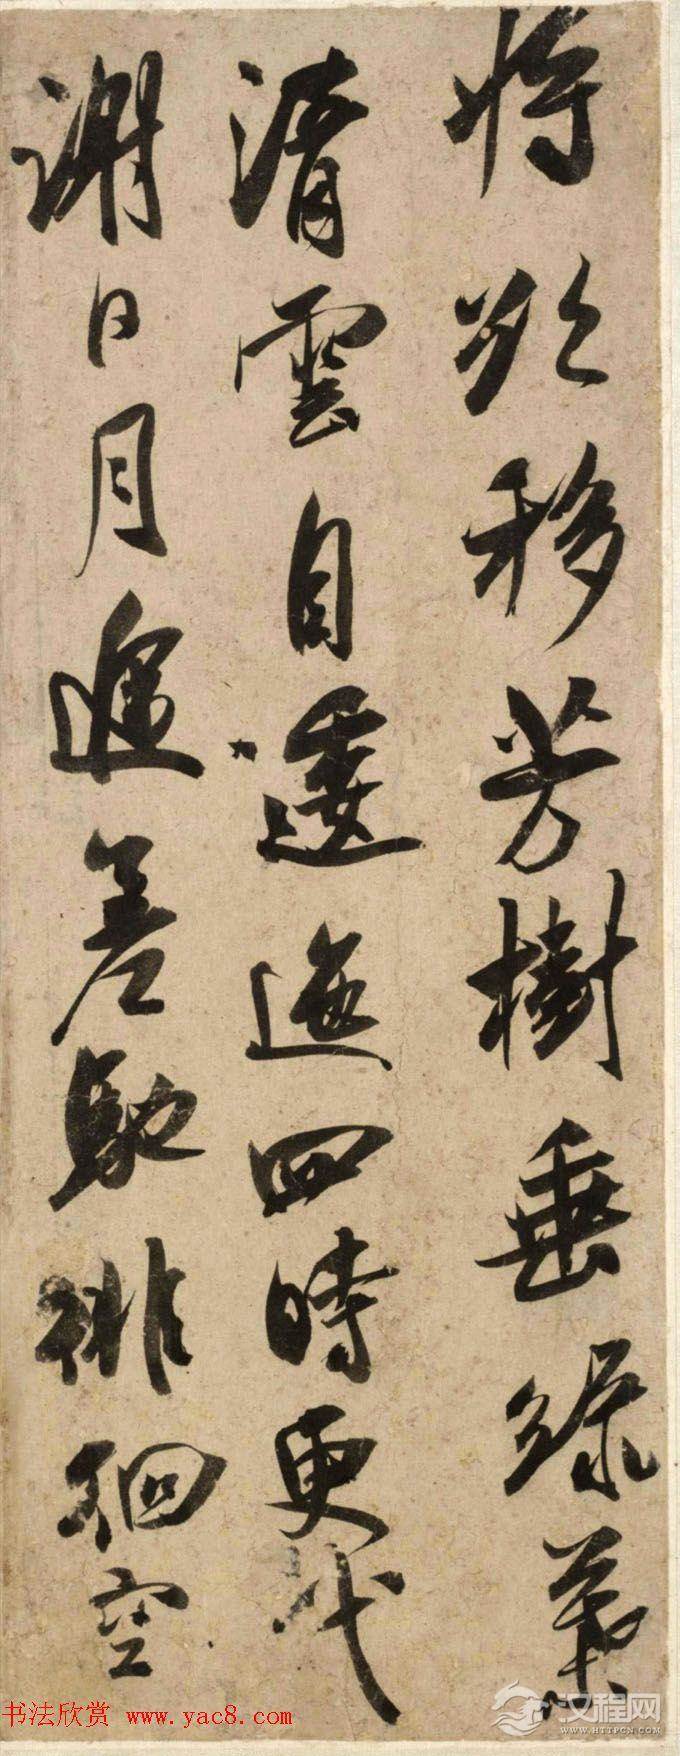 將欲移芳樹垂綠葉
清雲自逶迤四時更代
謝日月遞差馳徘徊空
书法欣赏 www.yac8.com
汉程网
WWW.HTTPCN.COM